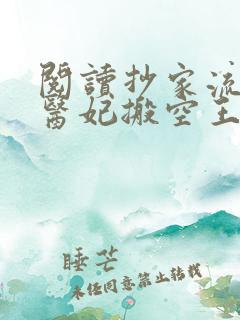 閱讀抄家流
醫妃搬空王
睡芒
未經同意禁止轉載